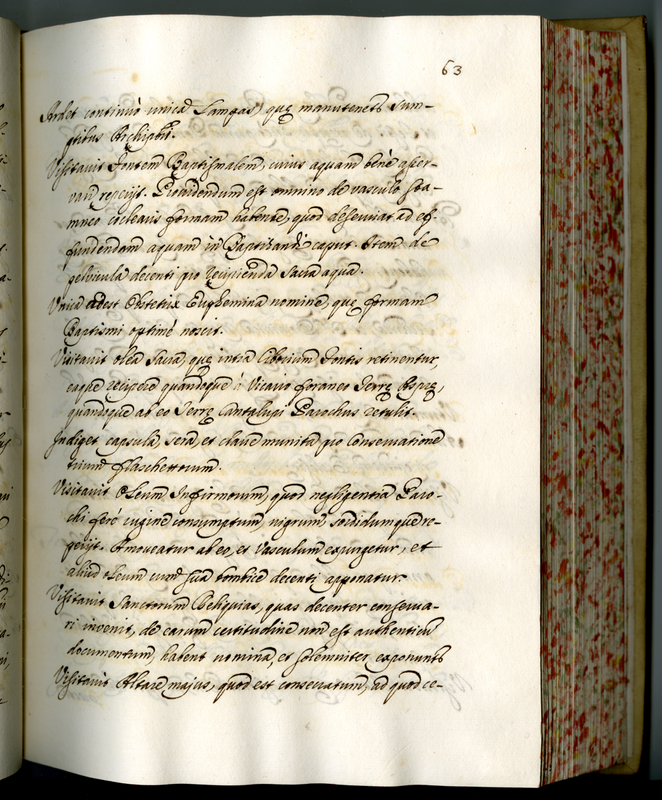 63
Ardet continuò unica Lampas, quę manutenetr sum-
ptibus Archiptri.
Visitavit Fontem Baptismalem, cuius aquam benè asser-
vari reperijt. Providendum est omnino de vasculo sta-
mneo coclearis formam habente, quod deserviat ad ef-
fundendam aquam in Baptizandi caput. Item de
pelvicula decenti pro recipienda sacra aqua.
Unica adest Obstetrix Euphemia nomine, quę formam
Baptismi optimè noscit.
Visitavit olea sacra, quę intra Ciborium Fontis retinentur,
eaque recipere quandoque à Vicario foraneo Terrę Rspę,
quandoque ab eo Terrę Cantalupi Parochus retulit.
Indiget capsula sera, et clave munita pro conservatione
trium flaschettorum.
Visitavit Oleum Infirmorum, quod negligentia Paro-
chi ferè rugine consumptum, nigrum, sordidumque re-
perijt. Amoveatur ab eo, et Vasculum expurgetur, et
aliud oleum cum sua bombice decenti apponatur.
Visitavit Sanctorum Reliquias, quas decenter conserva-
ri invenit, de earum certitudine non est authenticu
documentum, habent nomina, et solemniter exponuntr
Visitavit Altare majus, quod est consecratum, ad quod ce-